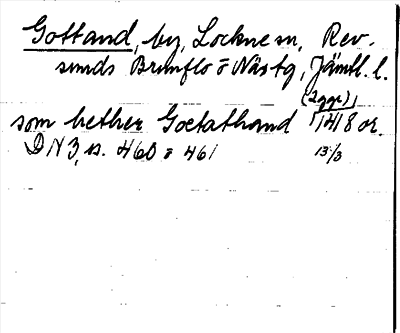 Gottand, by, Lockne sn, Rev-
sunds Brunflo o Näs tg, Jämtl. l.
(2 ggr)
som hether Goetathand 1418 or.
DN 3, s. 460 o 461 13/3